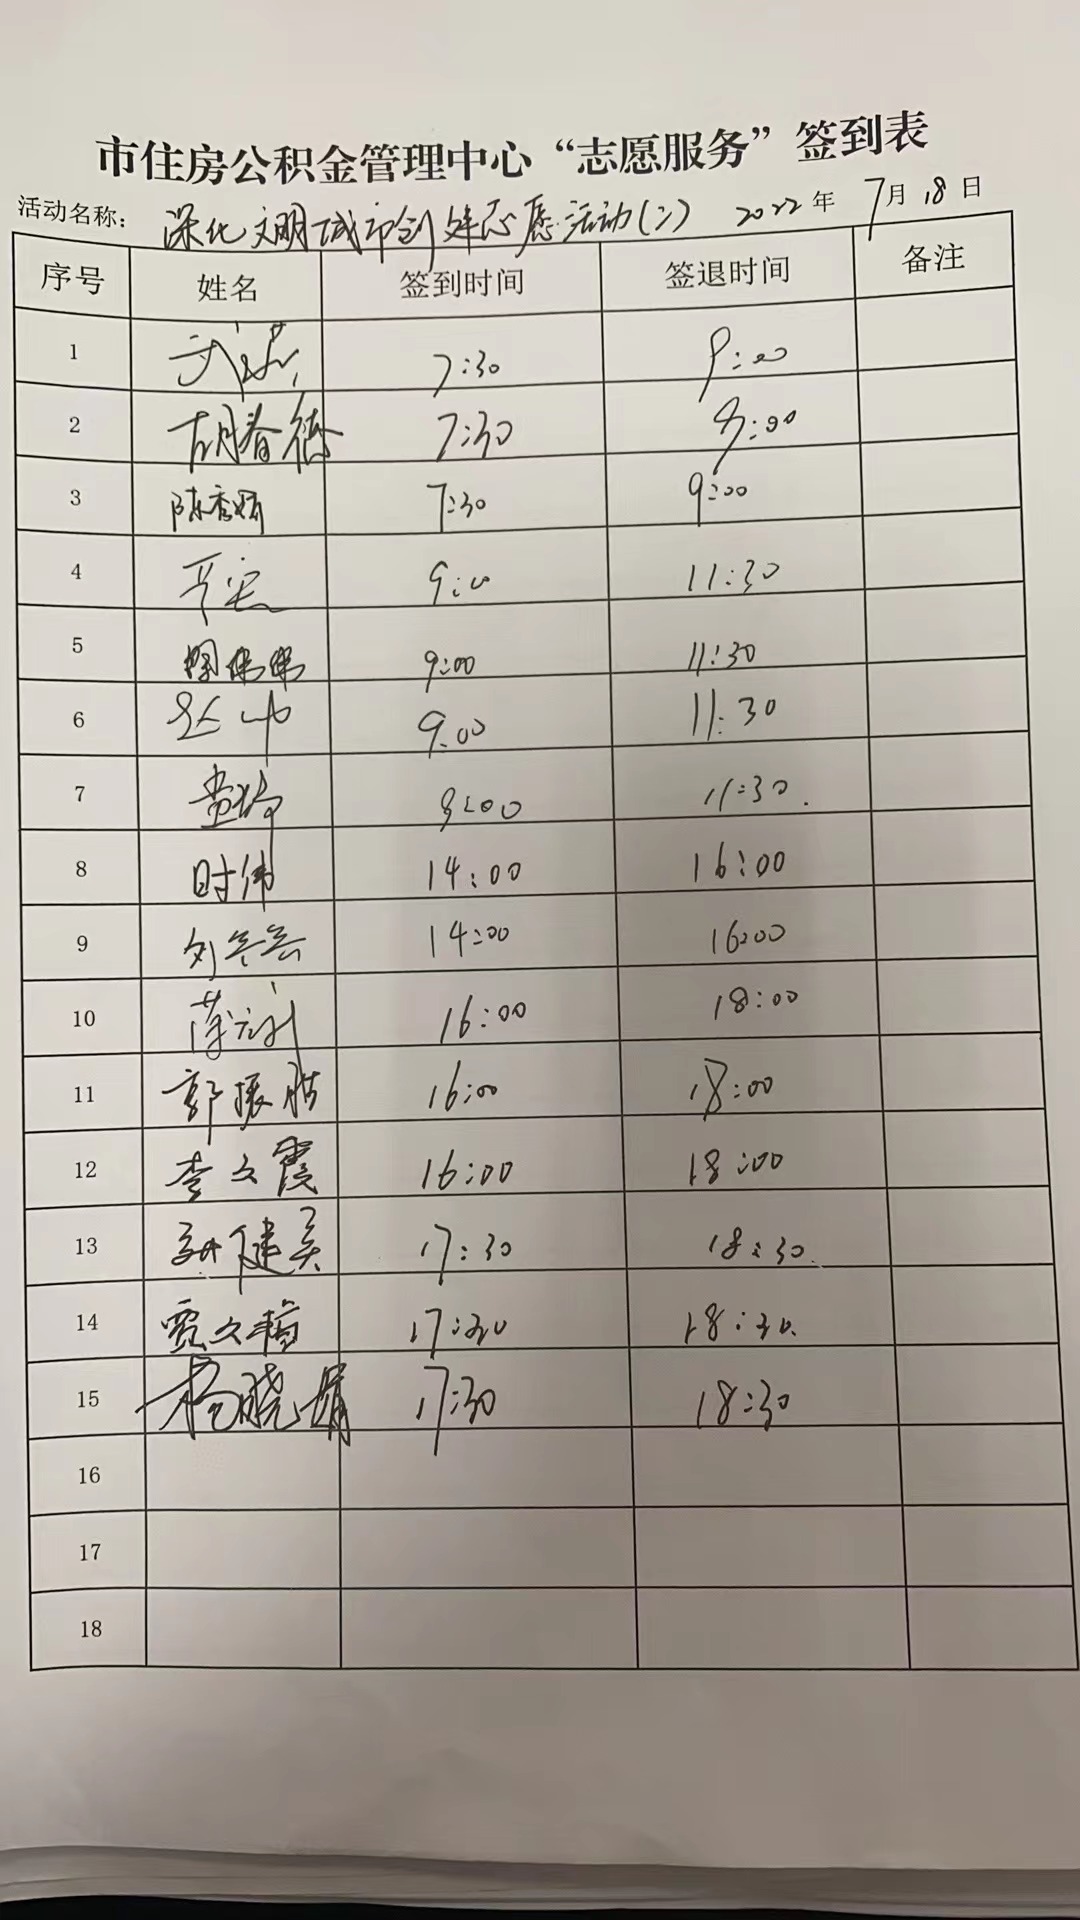 市住房公积金管理中心“志愿服务”签到表
活动名称: 深化文明城市创建志愿活动(二) 2022年 7月18日
序号 姓名 签到时间 签退时间 备注
1 7:30 9:00
2 胡春德 7:30 9:00
3 7:30 9:00
4 9:00 11:30
5 9:00 11:30
6 9:00 11:30
7 9:00 11:30.
8 时伟 14:00 16:00
9 14:00 16:00
10 16:00 18:00
11 郭振胜 16:00 18:00
12 李文霞 16:00 18:00
13 17:30 18:30.
14 贾文梅 17:30 18:30.
15 杨晓娟 17:30 18:30
16
17
18